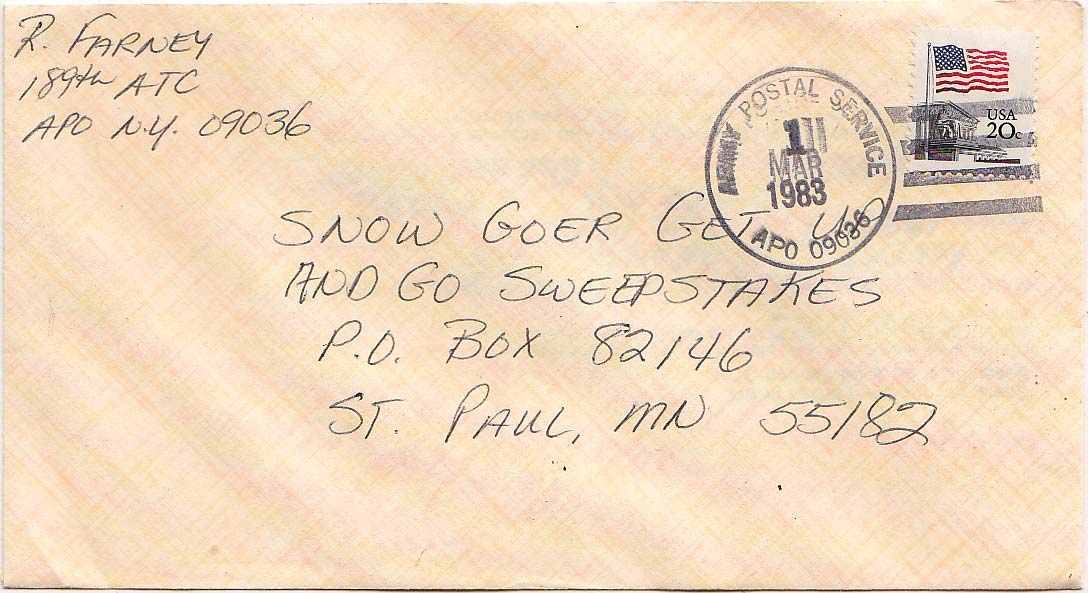 R. FARNEY
189th ATC
APO N.Y. 09036
ARMY POSTAL SERVICE
1
MAR
1983
APO 09036
USA
20c
SNOW GOER GET UP
AND GO SWEEPSTAKES
P.O. BOX 82146
ST. PAUL, MN 55182